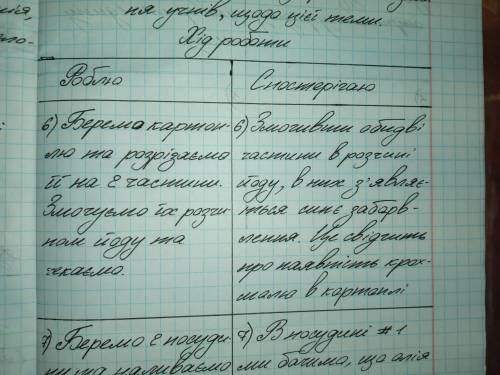 ня учнів, щодо цієї теми.
Хід роботи
Роблю
Спостерігаю
6) Берема картоп-
лю та розрізаємо
її на 2 частини.
Змочуємо їх розчи-
ном йоду та
чекаємо.
6) Змочивши обидві
частини в розчині
йоду, в них з'являє-
ться синє забарв-
лення. Це свідчить
про наявність крох-
малю в картоплі
7) Беремо 2 посуди-
ни та наливаємо
7) В посудині #1
ми бачимо, що олія